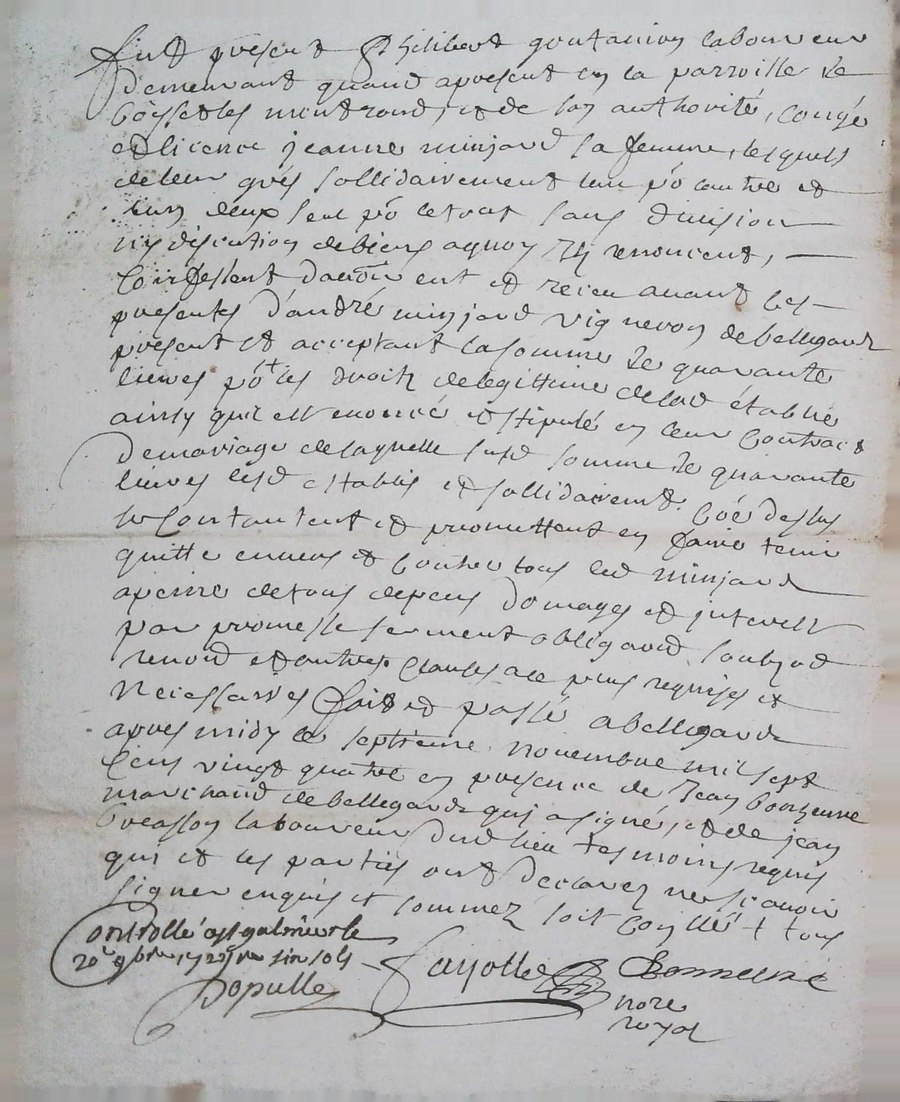 Fust présent Philibert goutanion laboureur
demeurant quand apresent en la parroisse de
Boisset les montrond, et de son authorité, congé
et licence jeanne minjard sa femme, lesquels
de leur grés sollidairement lun po lautre et
lun deux seul po le tout sans division
ny discution de biens a quoy ils renoncent,
Confessent davoir eut et receu avant les
presentes d'andré minjard vigneron de bellegarde
présent et acceptant la somme de quarante
livres po les droitz de legittime de lad établie
ainsy quil est énoncé et stipulé en leur contract
de mariage de laquelle susd somme de quarante
livres lesd establis et sollidairemt coe dessus
se contantent et promettent en faire tenir
quitte envers et contre tous led minjard
apeine de tous depens domages et interest
par promesse serment obligaond soubzod
renond et autres clauses ace plus requises et
necessaires fait et passé a bellegarde
apres midy le septieme novembre mil sept
cens vingt quatre en presence de Jean bonheurre
marchand de bellegarde qui a signé, et de jean
breasson laboureur dud lieu tesmoins requis
qui et les parties ont declarez ne scavoir
signer enquis et sommez soit + tous
Controllé a st galmier le
20e 9bre 1724 six sols
Dopulle
Fayolle
Bonneure
nore
royal